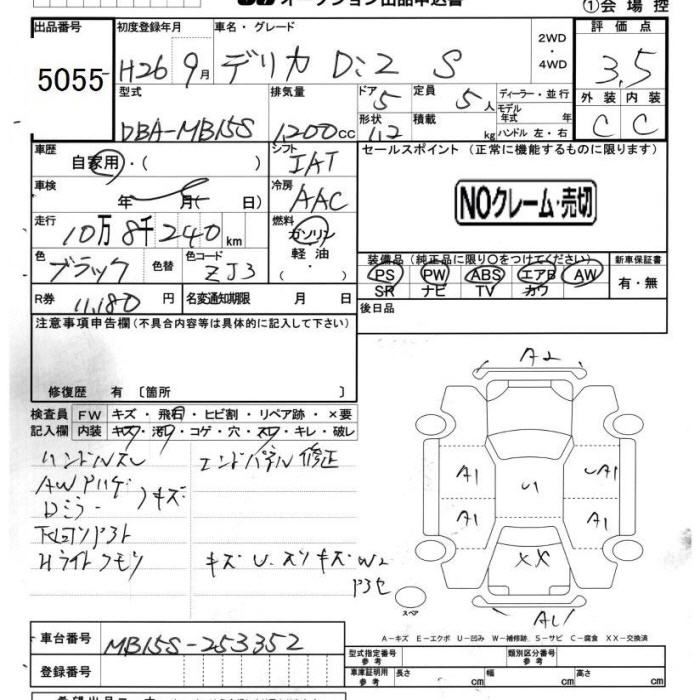 オークション出品申込書
①会場控
出品番号 初度登録年月 車名・グレード 2WD・4WD 評価点
5055 H26 9月 デリカ D:2 S 3,5
型式 排気量 ドア 5 定員 5人 ディーラー・並行 外装 内装
DBA-MB15S 1200cc 形状 積載 kg モデル年式 年 ハンドル 左・右 C C
車歴 シフト セールスポイント (正常に機能するものに限ります)
自家用・( ) IAT
車検 年 月( 日) 冷房 AAC NOクレーム・売切
走行 10万8千240km 燃料 ガソリン 軽油・
装備品 (純正品に限り○をつけてください) 新車保証書
色 ブラック 色替 色コード ZJ3 PS PW ABS エアB AW 有・無
SR ナビ TV カワ
R券 11,180円 名変通知期限 月 日 後日品
注意事項申告欄(不具合内容等は具体的に記入して下さい)
修復歴 有〔箇所 〕
検査員 FW キズ・飛石・ヒビ割・リペア跡・×要
記入欄 内装 キズ・汚レ・コゲ・穴・スレ・キレ・破レ
ハンドルスレ エンドパネル修正
AW
Dミラー キズ
Hライトクモリ キズ U. スリキズ W2
A2
A1 UA1
U1
A1 A1
XX
スペア
A-キズ E-エクボ U-凹み W-補修跡、S-サビ C-腐食 XX-交換済
車台番号 MB15S-253352 型式指定番号 参考 類別区分番号 参考
登録番号 車庫証明用 参考 長さ cm 幅 cm 高さ cm